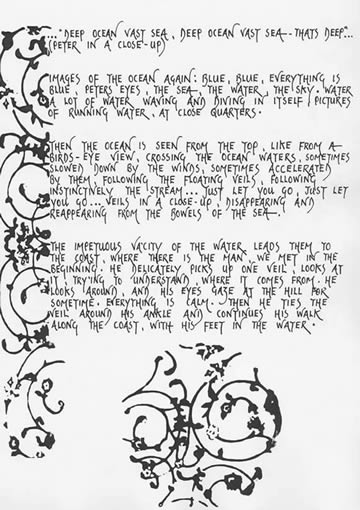 ..."DEEP OCEAN VAST SEA, DEEP OCEAN VAST SEA - THATS DEEP"...
(PETER IN A CLOSE-UP)
IMAGES OF THE OCEAN AGAIN: BLUE, BLUE, EVERYTHING IS
BLUE, PETERS EYES, THE SEA, THE WATER, THE SKY. WATER
A LOT OF WATER WAVING AND DIVING IN ITSELF, PICTURES
OF RUNNING WATER, AT CLOSE QUARTERS.
THEN THE OCEAN IS SEEN FROM THE TOP, LIKE FROM A
BIRDS-EYE VIEW, CROSSING THE OCEAN WATERS, SOMETIMES
SLOWED DOWN BY THE WINDS, SOMETIMES ACCELERATED
BY THEM, FOLLOWING THE FLOATING VEILS, FOLLOWING
INSTINCTIVELY THE STREAM... JUST LET YOU GO, JUST LET
YOU GO... VEILS IN A CLOSE-UP, DISAPPEARING AND
REAPPEARING FROM THE BOWELS OF THE SEA.
THE IMPETUOUS VACITY OF THE WATER LEADS THEM TO
THE COAST, WHERE THERE IS THE MAN WE MET IN THE
BEGINNING. HE DELICATELY PICKS UP ONE VEIL, LOOKS AT
IT, TRYING TO UNDERSTAND, WHERE IT COMES FROM. HE
LOOKS AROUND, AND HIS EYES GAZE AT THE HILL FOR
SOMETIME. EVERYTHING IS CALM. THEN HE TIES THE
VEIL AROUND HIS ANKLE AND CONTINUES HIS WALK
ALONG THE COAST, WITH HIS FEET IN THE WATER.